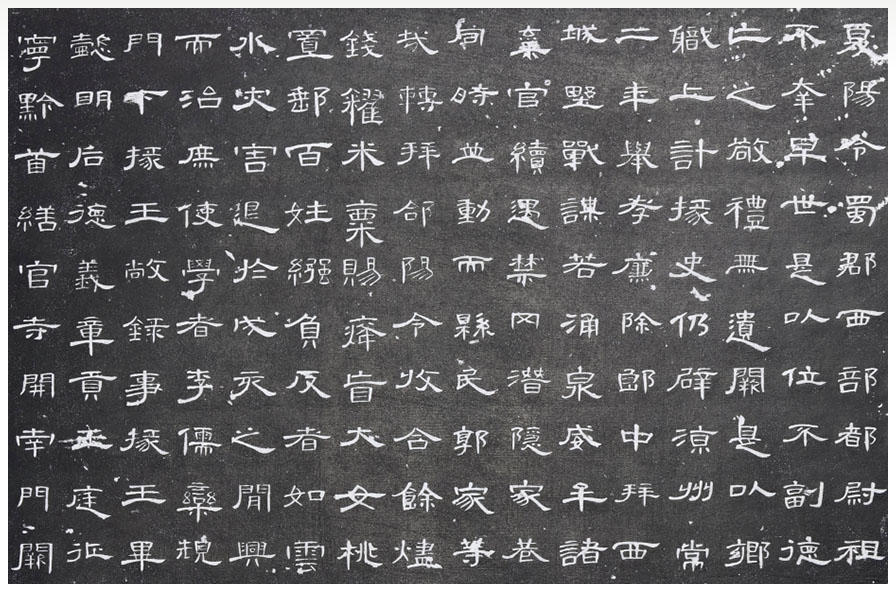 夏陽令蜀郡西部都尉祖
不幸早世是以位不副德
亡之敬禮無遺闕是以鄉
職上計掾史仍辟涼州常
二年舉孝廉除郎中拜西
城墅戰謀若涌泉威牟諸
棄官續遇禁网潛隱家巷
旬時並動而縣民郭家等
哉轉拜郃陽令收合餘燼
錢糴米粟賜癃盲大女桃
置郵百姓繦負反者如雲
水灾害退於戌亥之閒興
而治庶使學者李儒欒規
門下掾王敞錄事掾王畢
懿明后德義章貢王庭征
寧黔首繕官寺開南門闕